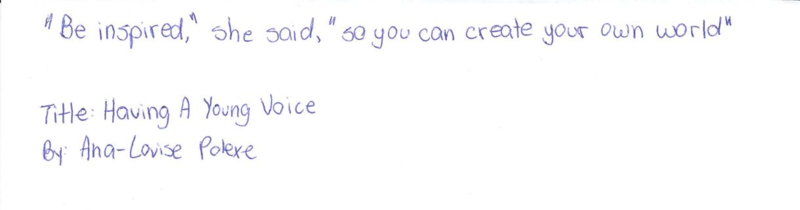 "Be inspired," she said, "so you can create your own world"
Title: Having A Young Voice
By: Ana-Louise Polexe